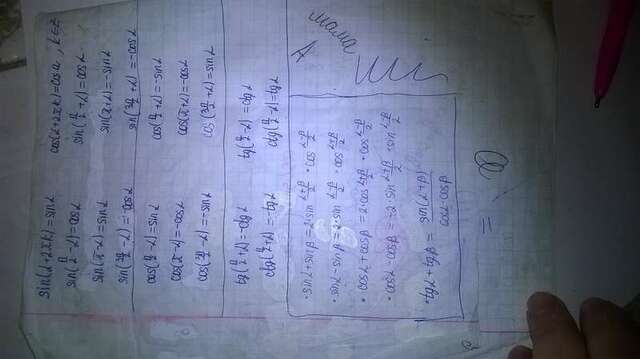 sin(α+2πk)=sinα cos(α+2πk)=cosα, k∈Z
sin(π/2-α)=cosα sin(π/2+α)=cosα
sin(π-α)=sinα sin(π+α)=-sinα
sin(3π/2-α)=-cosα sin(3π/2+α)=-cosα
cos(π/2-α)=sinα cos(π/2+α)=-sinα
cos(π-α)=-cosα cos(π+α)=-cosα
cos(3π/2-α)=-sinα cos(3π/2+α)=sinα
tg(π/2+α)=-ctgα tg(π/2-α)=ctgα
ctg(π/2+α)=-tgα ctg(π/2-α)=tgα
· sinα+sinβ=2·sin (α+β)/2 · cos (α-β)/2
· sinα-sinβ=2·sin (α-β)/2 · cos (α+β)/2
· cosα+cosβ=2·cos (α+β)/2 · cos (α-β)/2
· cosα-cosβ=-2·sin (α+β)/2 · sin (α-β)/2
· tgα+tgβ= sin(α+β)/(cosα·cosβ)
=